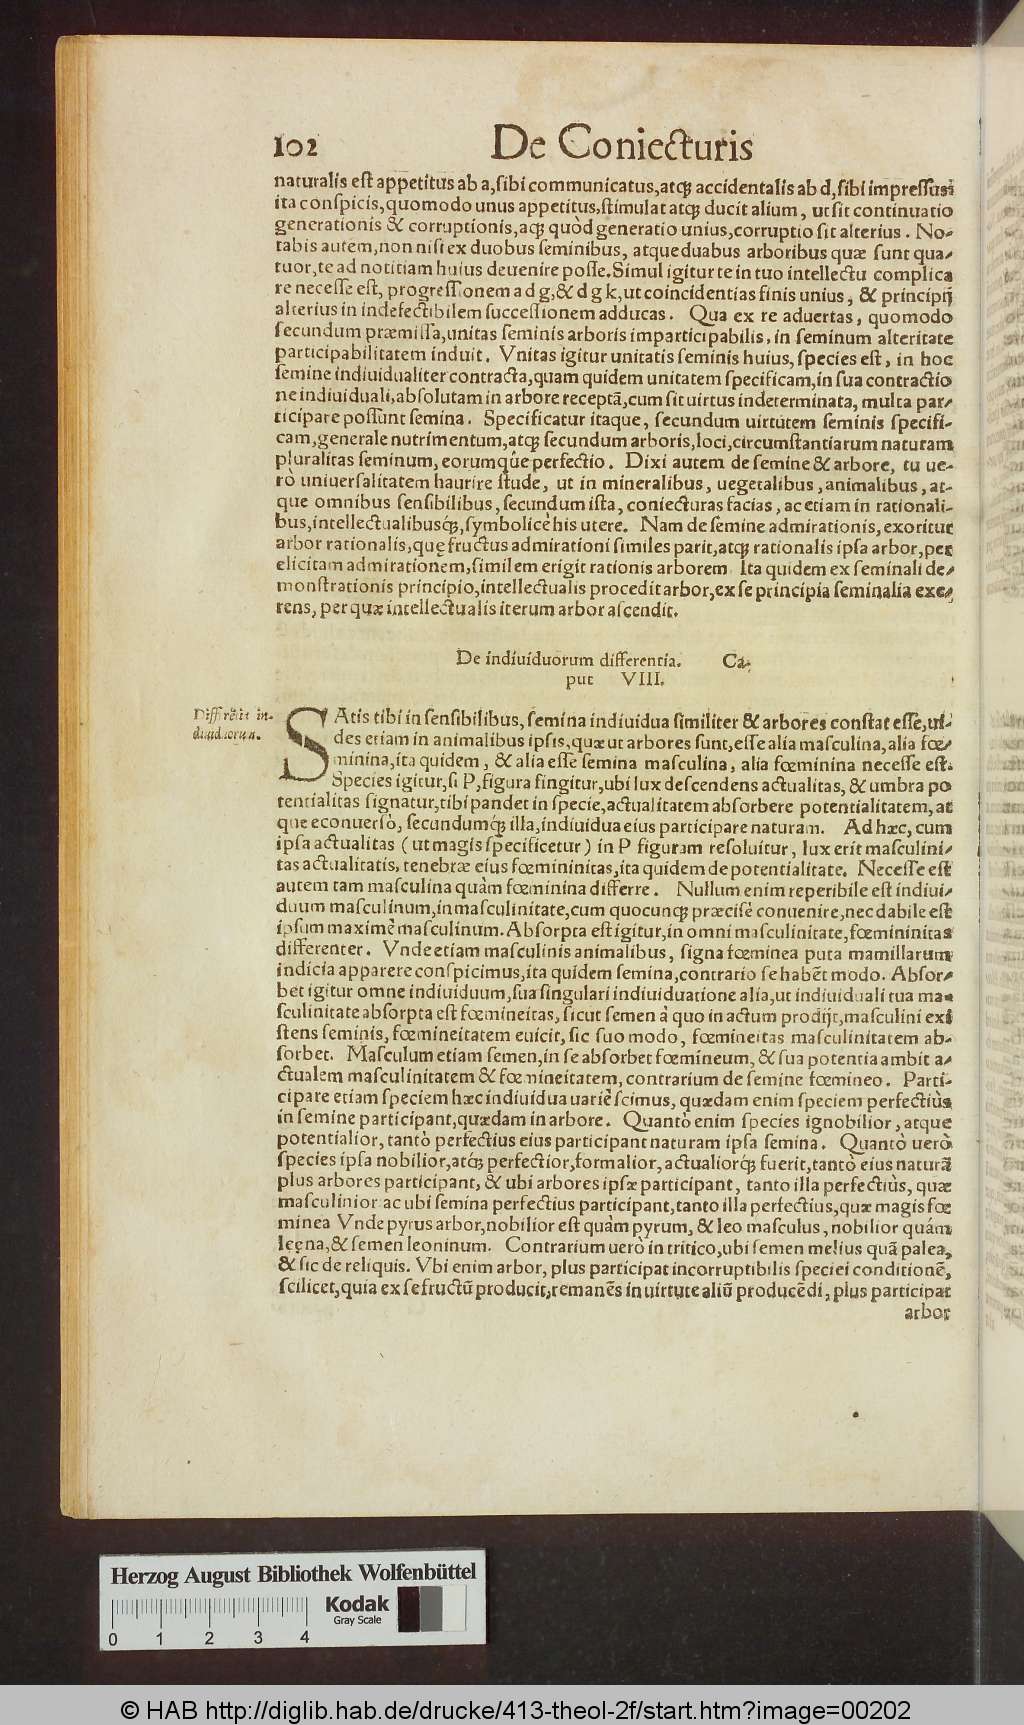 102 De Coniecturis
naturalis est appetitus ab a, sibi communicatus, atq; accidentalis ab d, sibi impressus:
ita conspicis, quomodo unus appetitus, stimulat atq; ducit alium, ut sit continuatio
generationis & corruptionis, aq; quòd generatio unius, corruptio sit alterius. No-
tabis autem, non nisi ex duobus seminibus, atque duabus arboribus quæ sunt qua-
tuor, te ad notitiam huius deuenire posse. Simul igitur te in tuo intellectu complica
re necesse est, progressionem a d g, & d g k, ut coincidentias finis unius, & principij
alterius in indefectibilem successionem adducas. Qua ex re aduertas, quomodo
secundum præmissa, unitas seminis arboris imparticipabilis, in seminum alteritate
participabilitatem induit. Vnitas igitur unitatis seminis huius, species est, in hoc
semine indiuidualiter contracta, quam quidem unitatem specificam, in sua contractio
ne indiuiduali, absolutam in arbore receptã, cum sit uirtus indeterminata, multa par-
ticipare possunt semina. Specificatur itaque, secundum uirtutem seminis specifi-
cam, generale nutrimentum, atq; secundum arboris, loci, circumstantiarum naturam
pluralitas seminum, eorumq́ue perfectio. Dixi autem de semine & arbore, tu ue-
rò uniuersalitatem haurire stude, ut in mineralibus, uegetalibus, animalibus, at-
que omnibus sensibilibus, secundum ista, coniecturas facias, ac etiam in rationali-
bus, intellectualibusq́;, symbolicè his utere. Nam de semine admirationis, exoritur
arbor rationalis, quę fructus admirationi similes parit, atq; rationalis ipsa arbor, per
elicitam admirationem, similem erigit rationis arborem Ita quidem ex seminali de-
monstrationis principio, intellectualis procedit arbor, ex se principia seminalia exe-
rens, per quæ intellectualis iterum arbor ascendit.
De indiuiduorum differentia. Ca-
put VIII.
Differẽtia in-
diuiduorum.
SAtis tibi in sensibilibus, semina indiuidua similiter & arbores constat esse, ui-
des etiam in animalibus ipsis, quæ ut arbores sunt, esse alia masculina, alia fœ-
minina, ita quidem, & alia esse semina masculina, alia fœminina necesse est.
Species igitur, si P, figura fingitur, ubi lux descendens actualitas, & umbra po
tentialitas signatur, tibi pandet in specie, actualitatem absorbere potentialitatem, at
que econuersò, secundumq́; illa, indiuidua eius participare naturam. Ad hæc, cum
ipsa actualitas (ut magis specificetur) in P figuram resoluitur, lux erit masculini-
tas actualitatis, tenebræ eius fœmininitas, ita quidem de potentialitate. Necesse est
autem tam masculina quàm fœminina differre. Nullum enim reperibile est indiui-
duum masculinum, in masculinitate, cum quocunq; præcisè conuenire, nec dabile est
ipsum maximè masculinum. Absorpta est igitur, in omni masculinitate, fœmininitas
differenter. Vnde etiam masculinis animalibus, signa fœminea puta mamillarum
indicia apparere conspicimus, ita quidem semina, contrario se habẽt modo. Absor-
bet igitur omne indiuiduum, sua singulari indiuiduatione alia, ut indiuiduali tua ma-
sculinitate absorpta est fœmineitas, sicut semen à quo in actum prodijt, masculini exi
stens seminis, fœmineitatem euicit, sic suo modo, fœmineitas masculinitatem ab-
sorbet. Masculum etiam semen, in se absorbet fœmineum, & sua potentia ambit a-
ctualem masculinitatem & fœmineitatem, contrarium de semine fœmineo. Parti-
cipare etiam speciem hæc indiuidua uariè scimus, quædam enim speciem perfectiùs
in semine participant, quædam in arbore. Quantò enim species ignobilior, atque
potentialior, tantò perfectius eius participant naturam ipsa semina. Quantò uerò
species ipsa nobilior, atq́; perfectior, formalior, actualiorq́; fuerit, tantò eius naturã
plus arbores participant, & ubi arbores ipsæ participant, tanto illa perfectiùs, quæ
masculinior ac ubi semina perfectius participant, tanto illa perfectius, quæ magis fœ
minea Vnde pyrus arbor, nobilior est quàm pyrum, & leo masculus, nobilior quám
leęna, & semen leoninum. Contrarium uerò in tritico, ubi semen melius quã palea,
& sic de reliquis. Vbi enim arbor, plus participat incorruptibilis speciei conditionẽ,
scilicet, quia ex se fructũ producit, remanẽs in uirtute aliũ producẽdi, plus participat
arbor
Herzog August Bibliothek Wolfenbüttel
Kodak
Gray Scale
0 1 2 3 4
© HAB http://diglib.hab.de/drucke/413-theol-2f/start.htm?image=00202